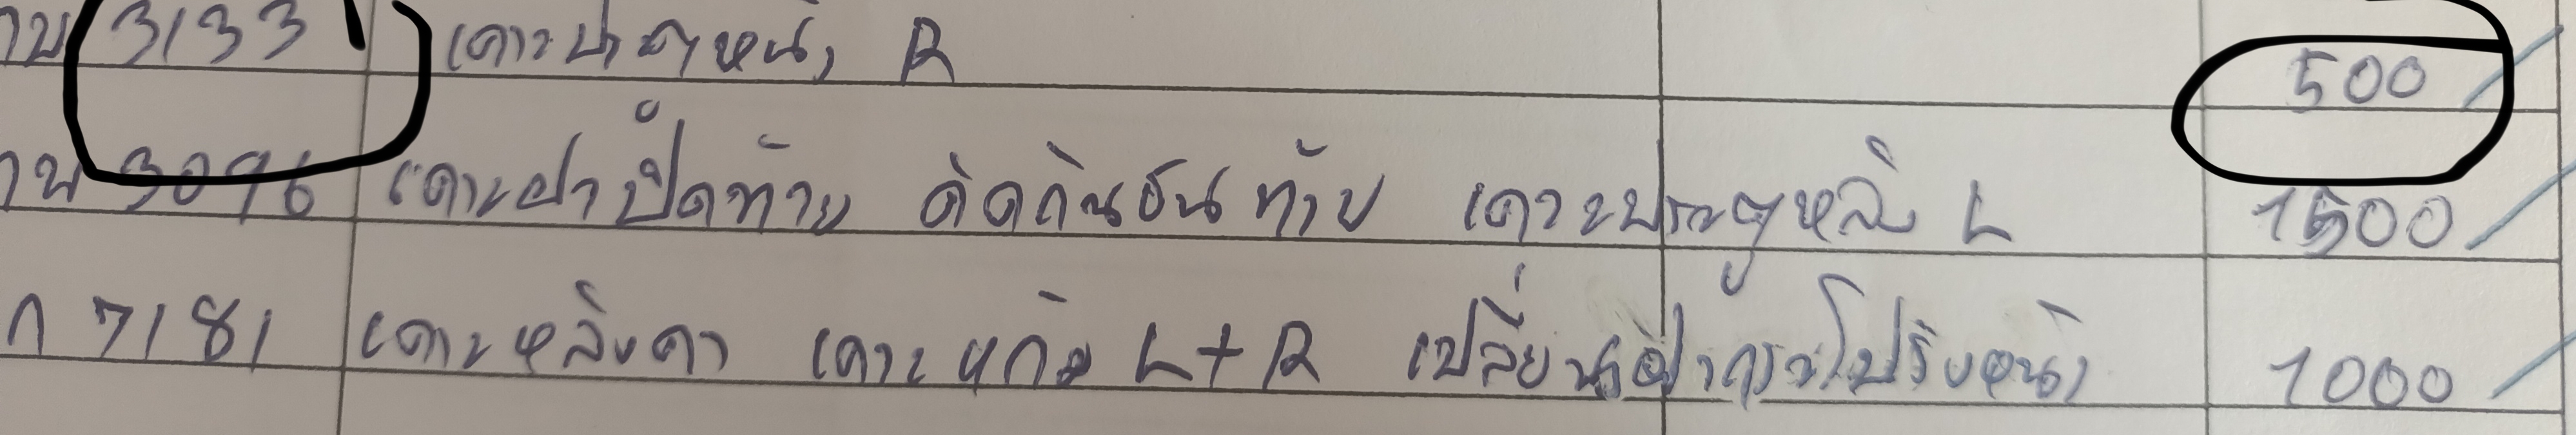 าพ 3133 เคาะประตูหน้า R 500
าพ 3096 เคาะฝาปิดท้าย ดัดกันชนท้าย เคาะประตูหลัง L 1500
ก 7181 เคาะหลังคา เคาะแก้ม L+R เปลี่ยนฝากระโปรงหน้า 1000